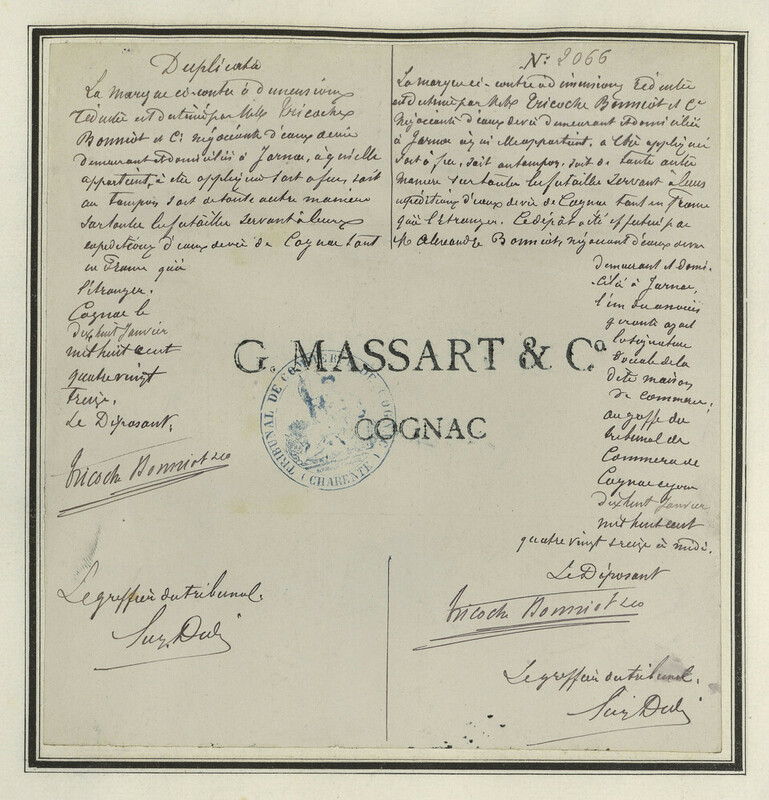 Duplicata
La marque ci-contre à dimensions
réduite est destinée par M.M. Tricoche
Bonniot et Cie négociants d'eaux de vie
demeurant et domiciliés à Jarnac, à qui elle
appartient, à être appliquée soit à feu, soit
au tampon soit de toute autre manière
sur toutes les futailles servant à leurs
expéditions d'eaux de vie de Cognac tant
en France qu'à
l'étranger.
Cognac le
dix huit Janvier
mil huit cent
quatre vingt
treize.
Le Déposant,
Tricoche Bonniot & Co
Le greffier du tribunal.
No: 2066
La marque ci-contre à dimensions réduites
est destinée par M.M. Tricoche Bonniot et Cie
Négociants d'eaux de vie demeurant et domiciliés
à Jarnac à qui elle appartient, à être appliquée
soit à feu, soit au tampon, soit de toute autre
manière sur toutes les futailles servant à leurs
expéditions d'eaux de vie de Cognac tant en France
qu'à l'étranger. Ce dépôt a été effectué par
M. Alexandre Bonniot, négociant d'eaux de vie
demeurant et domi-
cilié à Jarnac,
l'un des associés
gérants ayant
la signature
sociale de la
dite maison
de commerce,
au greffe du
tribunal de
Commerce de
Cognac ce jour
dix huit Janvier
mil huit cent
quatre vingt treize à midi.
Le Déposant
Tricoche Bonniot & Co
Le greffier du tribunal.
G. MASSART & Co
COGNAC
TRIBUNAL DE COMMERCE DE COGNAC (CHARENTE)